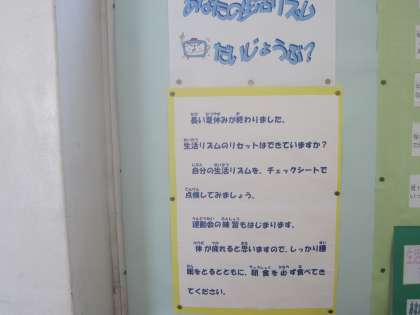 あなたの生活リズム
だいじょうぶ?
長い夏休みが終わりました。
生活リズムのリセットはできていますか?
自分の生活リズムを、チェックシートで
点検してみましょう。
運動会の練習もはじまります。
体が疲れると思いますので、しっかり睡
眠をとるとともに、朝食を必ず食べてき
てください。